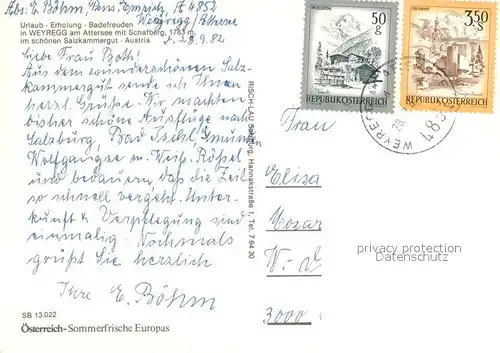 Abs: E. Böhm, Pens. Empich, A 4852
Weyregg / Attersee
Urlaub · Erholung · Badefreuden
in WEYREGG am Attersee mit Schafberg, 1783 m
im schönen Salzkammergut · Austria
28.9.82
Liebe Frau Both!
Aus dem wunderschönen Salz-
kammergut sende ich Ihnen
herzl. Grüße. Wir machten
bisher schöne Ausflüge nach
Salzburg, Bad Ischl, Gmunden
Wolfgangsee m. Weiß. Rössel
und bedauern, daß die Zeit
so schnell vergeht. Unter-
kunft & Verpflegung sind
einmalig. Nochmals
grüßt Sie herzlich
Ihre E. Böhm
SB 13.022
Österreich-Sommerfrische Europas
RISCH-LAU Salzburg, Hannakstraße 1, Tel. 7 64 30
50 g
REPUBLIK ÖSTERREICH
3.50 S
REPUBLIK ÖSTERREICH
WEYREGG
Frau
Elisa
Mozar
W-
3000
privacy protection
Datenschutz